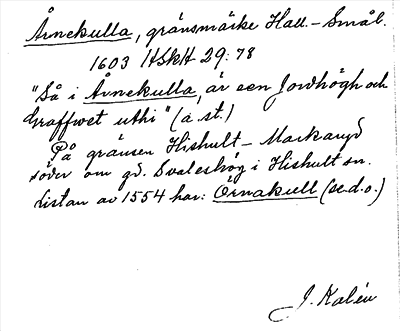 Årnekulla, gränsmärke Hall.-Smål.
1603 HSkH 29:78
"Så i Årnekulla, är een Jordhögh och
Graffwet uthi" (a. st.)
På gränsen Hishult-Markaryd
söder om gd. Svaleshög i Hishult sn.
Listan av 1554 har: Örnakull (se d.o.)
J. Kalén